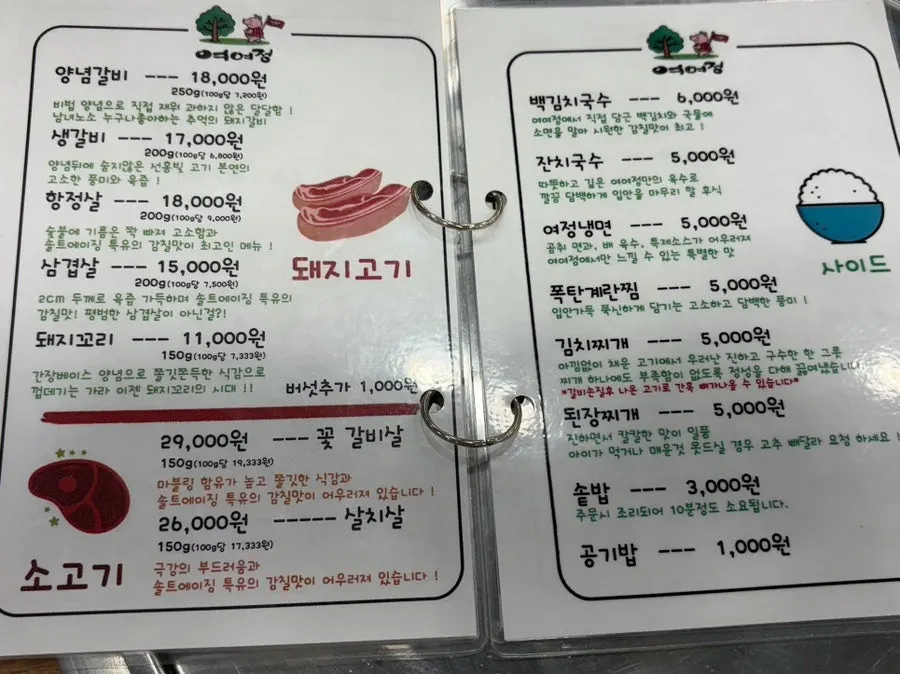 여여정
양념갈비 --- 18,000원
250g(100g당 7,200원)
비법 양념으로 직접 재워 과하지 않은 달달함 !
남녀노소 누구나좋아하는 추억의 돼지갈비
생갈비 --- 17,000원
200g(100g당 6,800원)
양념뒤에 숨지않은 선홍빛 고기 본연의
고소한 풍미와 육즙 !
항정살 --- 18,000원
200g(100g당 9,000원)
숯불에 기름은 쫙 빠져 고소함과
솔트에이징 특유의 감칠맛이 최고인 메뉴 !
삼겹살 --- 15,000원
200g(100g당 7,500원)
2cm 두께로 육즙 가득하며 솔트에이징 특유의
감칠맛! 평범한 삼겹살이 아닌걸?!
돼지꼬리 --- 11,000원
150g(100g당 7,333원)
간장베이스 양념으로 쫄깃쫀득한 식감으로
껍데기는 가라 이젠 돼지꼬리의 시대 !!
버섯추가 1,000원
돼지고기
29,000원 --- 꽃 갈비살
150g(100g당 19,333원)
마블링 함유가 높고 쫄깃한 식감과
솔트에이징 특유의 감칠맛이 어우러져 있습니다 !
26,000원 ----- 살치살
150g(100g당 17,333원)
극강의 부드러움과
솔트에이징 특유의 감칠맛이 어우러져 있습니다 !
소고기
여여정
백김치국수 --- 6,000원
여여정에서 직접 담근 백김치와 국물에
소면을 말아 시원한 감칠맛이 최고 !
잔치국수 --- 5,000원
따뜻하고 깊은 여여정만의 육수로
깔끔 담백하게 입안을 마무리 할 후식
여정냉면 --- 5,000원
곰취 면과, 배 육수, 특제소스가 어우러져
여여정에서만 느낄 수 있는 특별한 맛
폭탄계란찜 --- 5,000원
입안가득 푹신하게 담기는 고소하고 담백한 풍미 !
김치찌개 --- 5,000원
아낌없이 채운 고기에서 우러난 진하고 구수한 한 그릇
찌개 하나에도 부족함이 없도록 정성을 다해 끓여냈습니다
"갈비손질후 나온 고기로 간혹 뼈가나올 수 있습니다"
된장찌개 --- 5,000원
진하면서 칼칼한 맛이 일품
아이가 먹거나 매운것 못드실 경우 고추 빼달라 요청 하세요
솥밥 --- 3,000원
주문시 조리되어 10분정도 소요됩니다.
공기밥 --- 1,000원
사이드